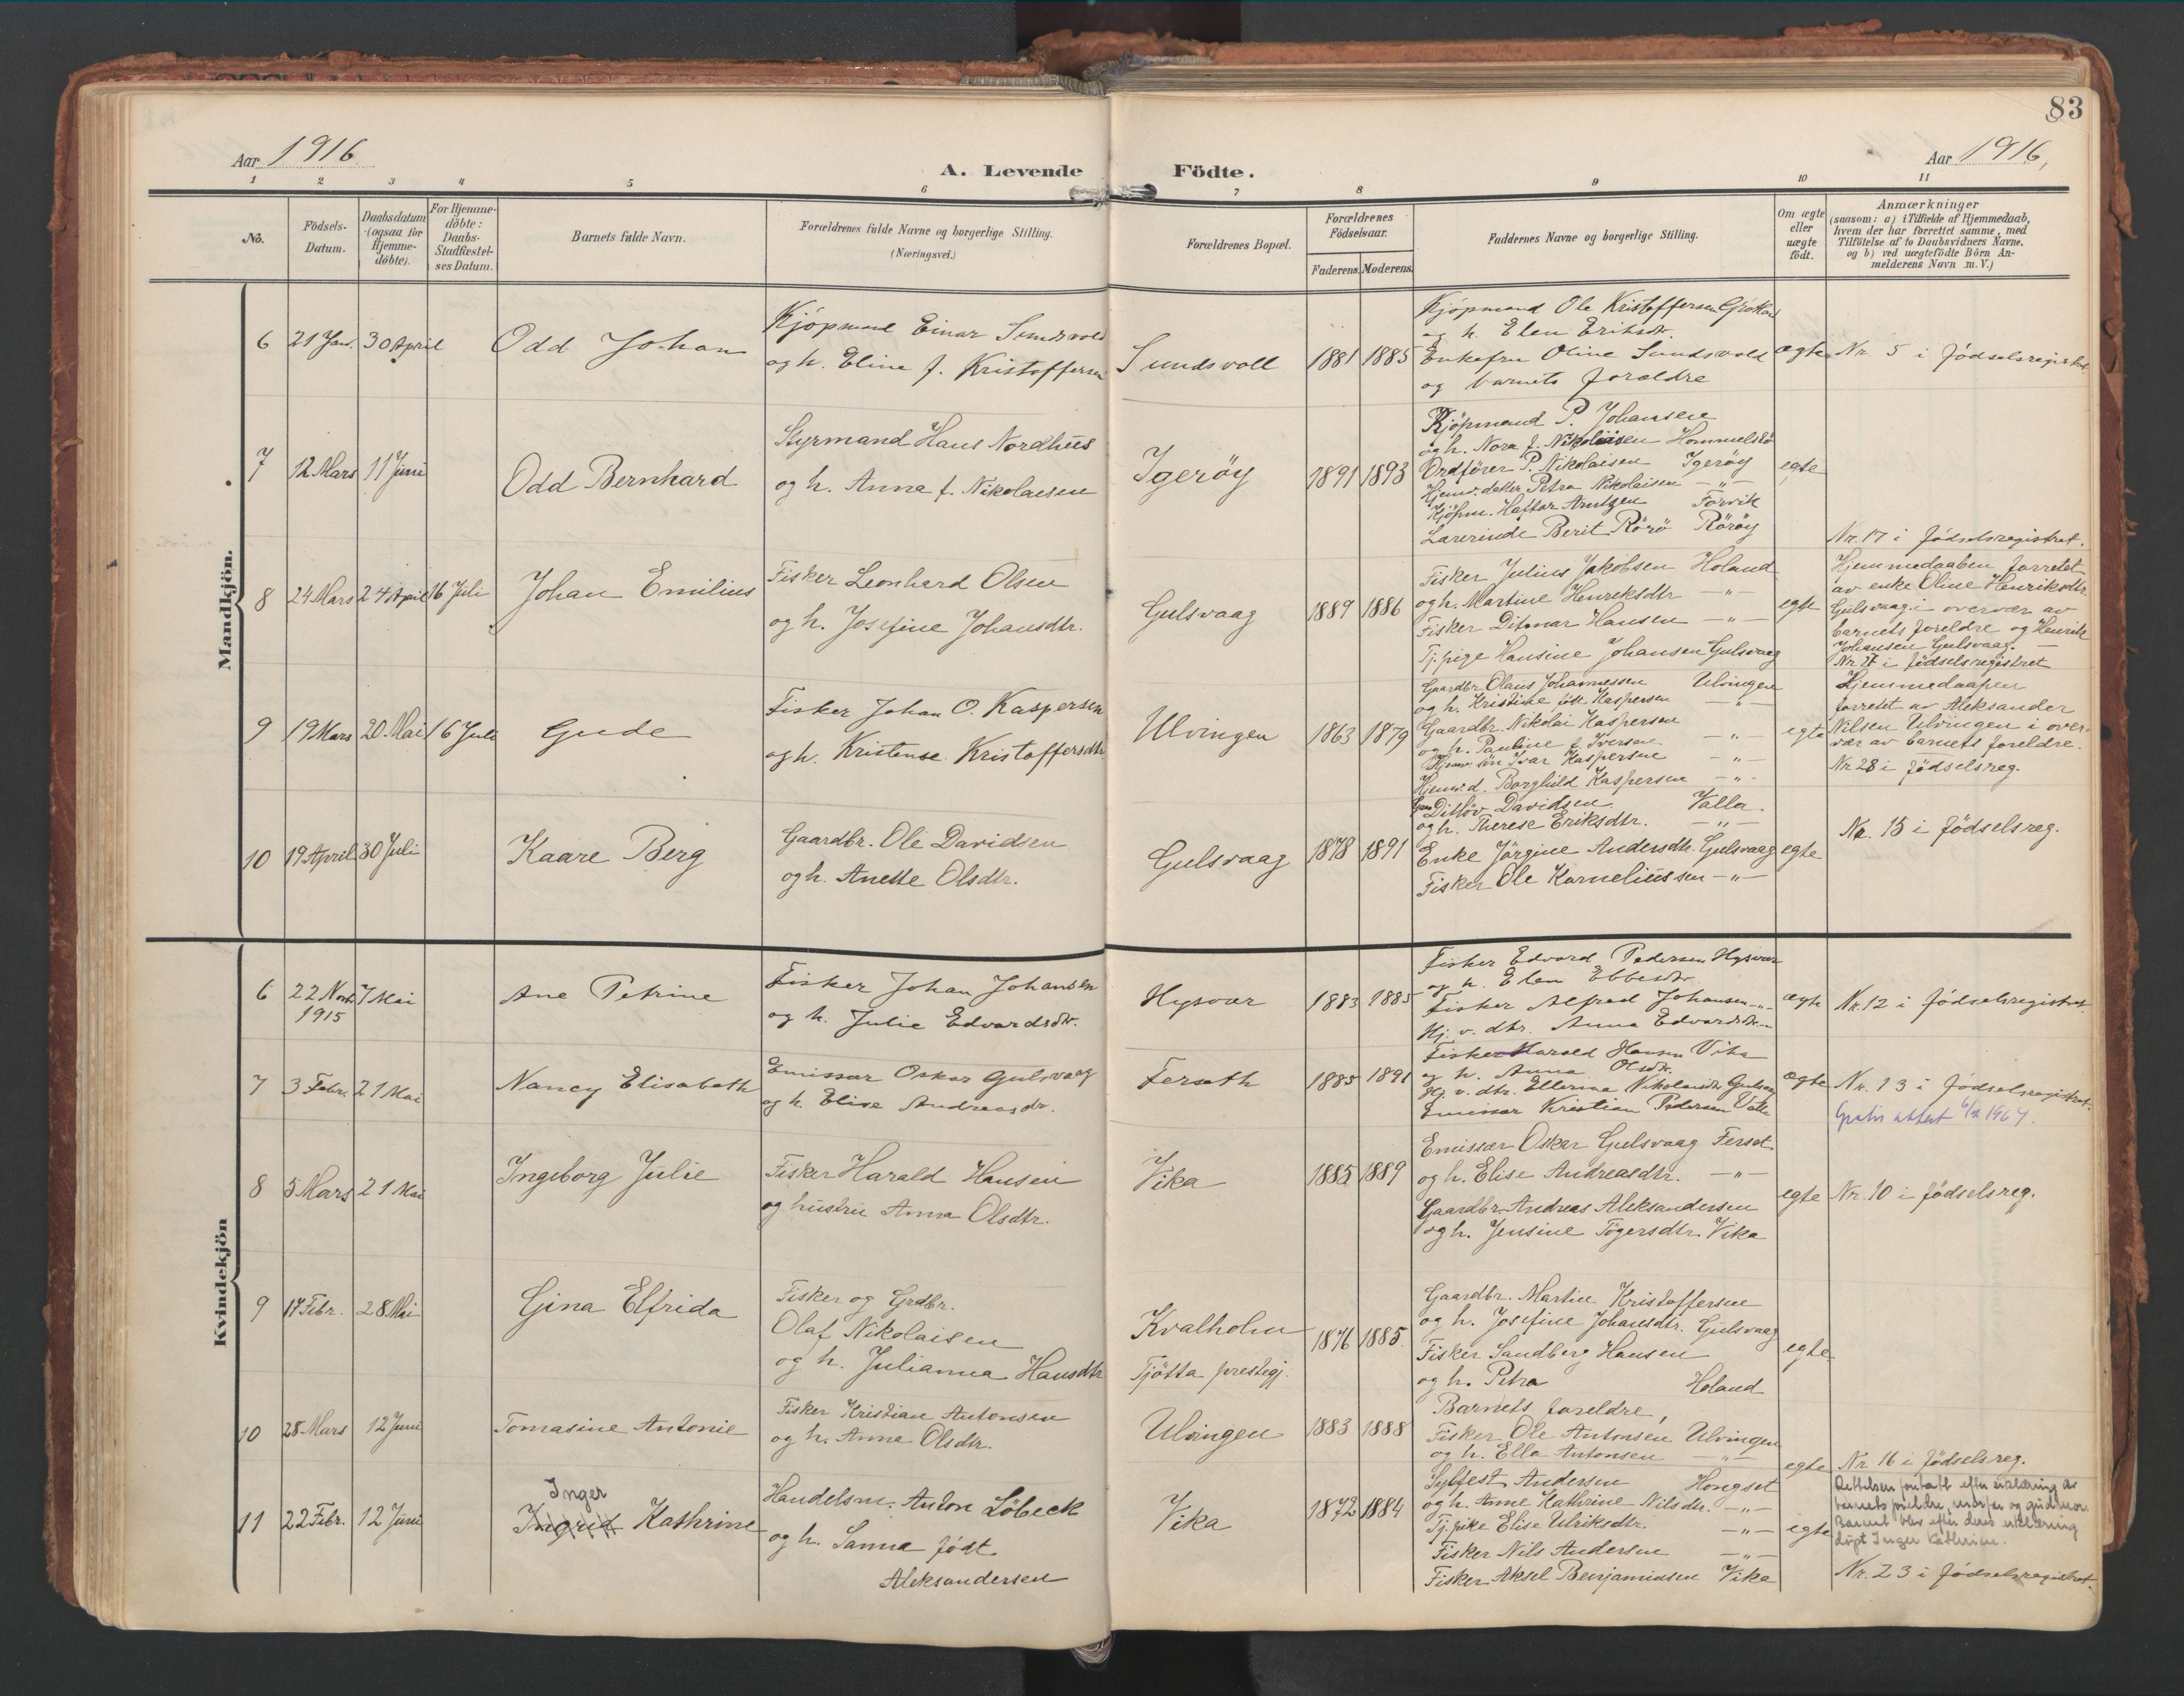 83
Aar 1916. A. Levende Födte. Aar 1916,
1 2 3 4 5 6 7 8 9 10 11
No.
Födsels-
Datum.
Daabsdatum
(ogsaa for
Hjemme-
döbte).
For Hjemme-
döbte:
Daabs-
Stadfæstel-
ses Datum.
Barnets fulde Navn.
Forældrenes fulde Navne og borgerlige Stilling.
(Næringsvei.)
Forældrenes Bopæl.
Forældrenes
Födselsaar.
Faderens. Moderens.
Faddernes Navne og borgerlige Stilling.
Om ægte
eller
uægte
födt.
Anmærkninger
(saasom: a) i Tilfælde af Hjemmedaab,
hvem der har forrettet samme, med
Tilföielse af to Daabsvidners Navne,
og b) ved uægtefödte Börn An-
melderens Navn m. V.)
Mandkjön.
6 21 Jan. 30 April Odd Johan
Kjöpmand Einar Sundsvold
og h. Eline f. Kristoffersen
Sundsvoll 1881 1885
Kjöpmand Ole Kristoffersen
og h. Elen Eriksdtr.
Enkefru Oline Sundsvold
og barnets forældre
ægte Nr. 5 i födselsregistret.
7 12 Mars 11 Juni Odd Bernhard
Styrmand Hans Nordhus
og h. Anna f. Nikolaisen
Igeröy 1891 1893
Kjöpmand P. Johansen
og h. Nora f. Nikolaisen
Ordförer P. Nikolaisen Igeröy
Hjemv. datter Petra Nikolaisen -"-
Kjöpm. Haftor Arntzen Forvik
Lærerinde Berit Rörö Röröy
egte
Nr. 17 i födselsregistret.
8 24 Mars 24 April 16 Juli Johan Emilius
Fisker Leonhard Olsen
og h. Josefine Johansdtr.
Gulsvaag 1889 1886
Fisker Julius Jakobsen Holand
og h. Martine Henriksdtr -"-
Fisker Ditmar Hansen -"-
Tj. pige Hansine Johansen Gulsvaag
egte
Hjemmedaaben forretet
av enke Oline Henriksdtr.
Gulsvaag i overvær av
barnets foreldre og Henrik
Johansen Gulsvaag.
Nr. 27 i födselsregistret
9 19 Mars 20 Mai 16 Juli Gude
Fisker Johan O. Kaspersen
og h. Kristense Kristoffersdtr.
Ulvingen 1863 1879
Gaardbr. Olaus Johannessen Ulvingen
og h. Kristine födt Kaspersen -"-
Gaardbr. Nikolai Kaspersen
og h. Pauline f. Iversen -"-
Hjemv. sön Ivar Kaspersen -"-
Hjemv. d. Borghild Kaspersen -"-
egte
Hjemmedaapen
forretet av Aleksander
Nilsen Ulvingen i over-
vær av barnets foreldre.
Nr. 28 i födselsreg.
10 19 April 30 Juli Kaare Berg
Gaardbr. Ole Davidsen
og h. Anette Olsdtr.
Gulsvaag 1878 1891
Ditlöv Davidsen. Valla.
og h. Therese Eriksdtr. -"-
Enke Jörgine Andersdtr. Gulsvaag
Fisker Ole Korneliussen -"-
egte
Nr. 15 i födselsreg.
Kvindekjön
6 22 Novbr. 1915 7 Mai Ane Petrine
Fisker Johan Johansen
og h. Julie Edvardsdtr.
Hysvær 1883 1885
Fisker Edvard Pedersen Hysvær
og h. Elen Ebbesdtr
Fisker Alfred Johansen -"-
Hj. v. dtr. Anna Edvardsdtr. -"-
ægte Nr. 12 i födselsregistret.
7 3 Febr. 21 Mai Nancy Elisabeth
Emissær Oskar Gulsvaag
og h. Elise Andreasdtr.
Forseth 1885 1891
Fisker Harald Hansen Vika
og h. Anna Olsdtr.
Hj. v. dtr. Ellerina Nikolaisdtr. Gulsvaag
Emissær Kristian Pedersen Valla
ægte Nr. 13 i födselsregistret.
Gratis attest 1964.
8 5 Mars 21 Mai Ingeborg Julie
Fisker Harald Hansen
og hustru Anna Olsdtr.
Vika 1885 1889
Emissær Oskar Gulsvaag Forset
og h. Elise Andreasdtr. -"-
Gaardbr. Andreas Aleksandersen
og h. Jensine Tögersdtr. Vika
egte Nr. 10 i födselsreg.
9 17 Febr. 28 Mai Gina Elfrida
Fisker og Grdbr.
Olaf Nikolaisen
og h. Julianna Hansdtr
Kvalholm
Tjötta prestegj.
1876 1885.
Gaardbr. Martin Kristoffersen
og h. Josefine Johansdtr. Gulsvaag
Fisker Sandberg Hansen
og h. Petra Holand
egte
10 28 Mars 12 Juni Tomasine Antonie
Fisker Kristian Antonsen
og h. Anna Olsdtr.
Ulvingen 1883 1888
Barnets foreldre,
Fisker Ole Antonsen Ulvingen
og h. Ella Antonsen -"-
egte Nr. 16 i födselsreg.
11 22 Febr. 12 Juni Inger
Ingrid Kathrine
Handelsm. Anton Löbeck
og h. Sanna födt
Aleksandersen
Vika 1872 1884
Sylfest Andersen Hongset
og h. Anne Kathrine Nilsdtr. -"-
Tj. pike Elise Ulriksdtr. -"-
Fisker Nils Andersen -"-
Fisker Aksel Benjaminsen Vika
egte
Rettelsen foretatt efter erklæring av
barnets foreldre, morfar og gudmor.
Barnet blev efter deres erklæring
döpt Inger Kathrine.
Nr. 23 i födselsregistret.